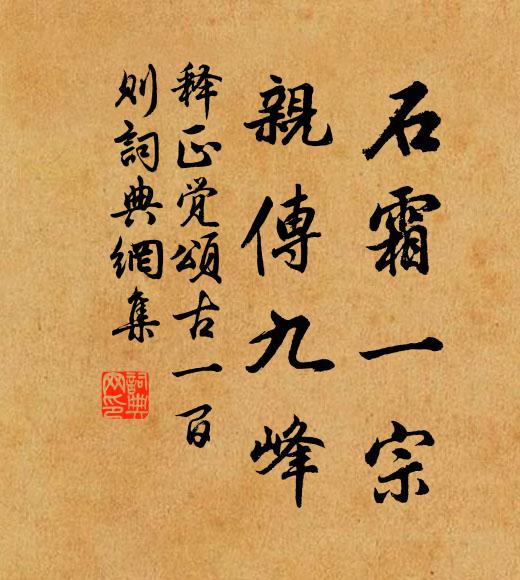 石霜一宗
親傳九峰
释正觉頌古一百
则詞典網集
詞典
网印